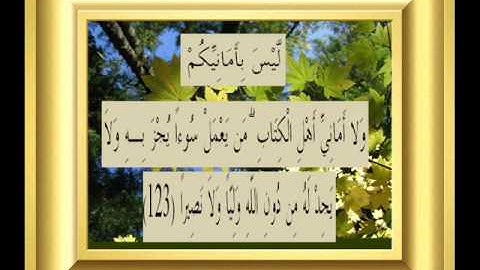 لَّيْسَ بِأَمَانِيِّكُمْ
وَلا أَمَانِيِّ أَهْلِ الْكِتَابِ ۗ مَن يَعْمَلْ سُوءاً يُجْزَ بِـــهِ وَلاَ
يَجِدْ لَهُ مِن دُونِ اللّهِ وَلِيّاً وَلاَ نَصِيراً (123)